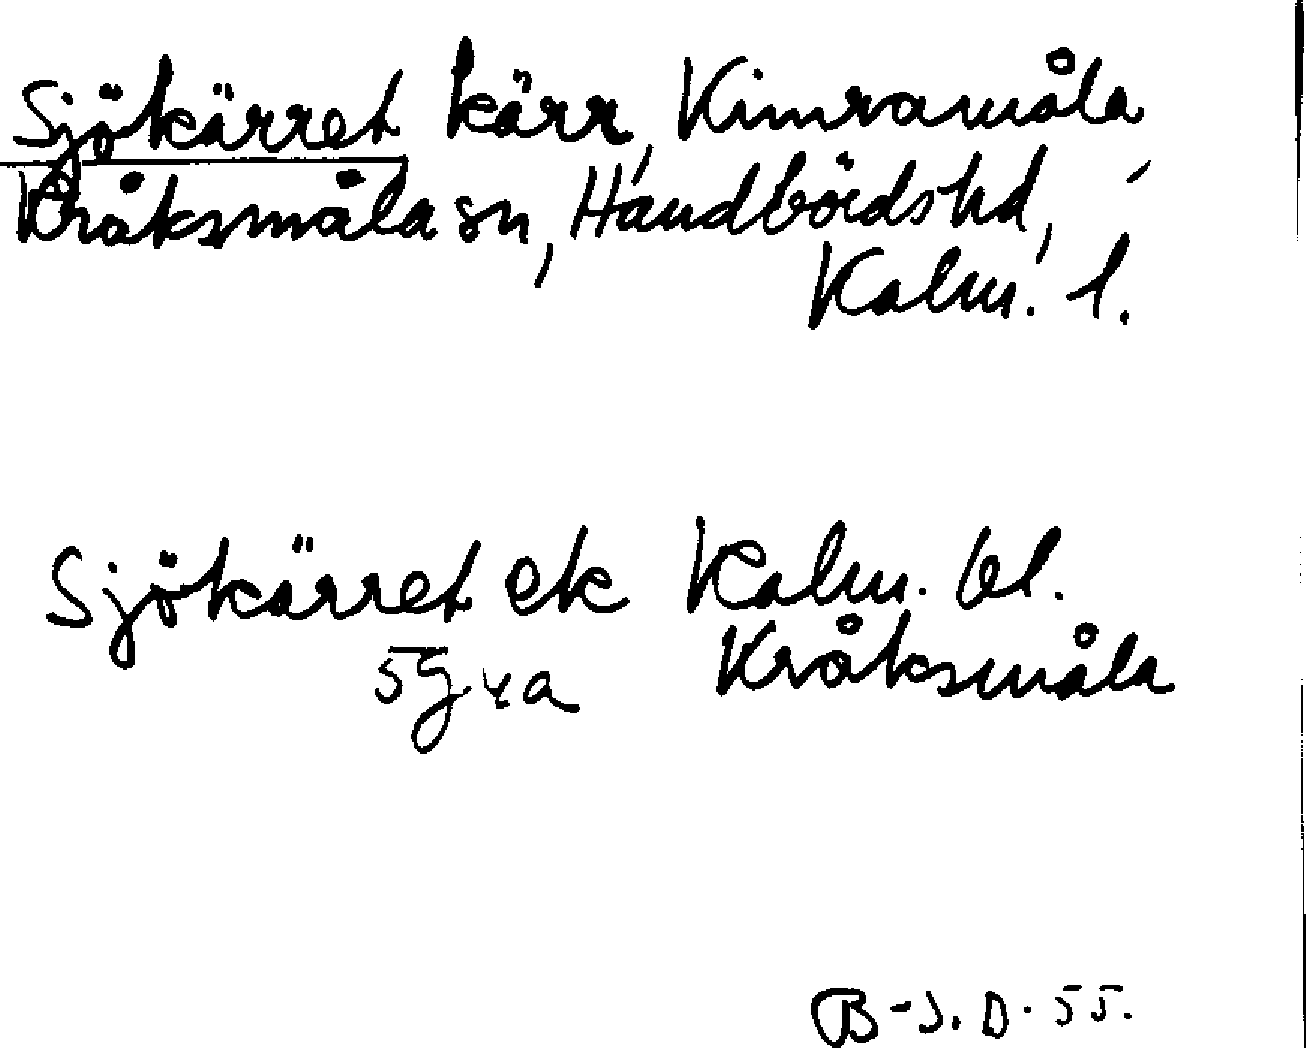 Sjökärret kärr, Kimramåla,
Kråksmåla sn, Handbörds hd,
Kalm. l.
Sjökärret ek Kalm. bl.
5G4a Kråksmåla
B-J. D. 55.